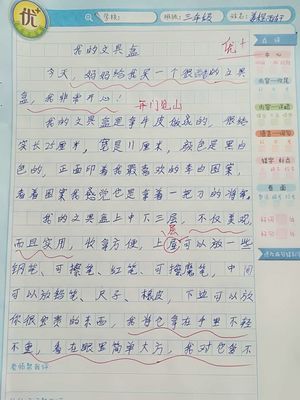 优+
学校:
班级: 三年级
姓名:
我的文具盒
优+
今天,妈妈给我买一个很酷的文具
盒,我非常开心!
开门见山
我的文具盒是拿牛皮做成的,很结
实长25厘米,宽是11厘米,颜色是黑白
色的,正面印着我最喜欢的车白图案,
看着图案我感觉也是拿着一把刀的
我的文具盒上中下三层,不仅美观,
而且实用,收拿方便,上层可以放一些
层
钢笔、可擦笔、红笔、可擦魔笔,中间
可以放铅笔、尺子、橡皮,下边可以放
你很宝贵的东西,我首它拿在手里不轻
不重,看在眼里简单大方,我对它爱不
老师帮我评